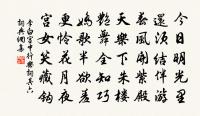 今日明光里
還須結伴游
春風開紫殿
天樂下朱樓
艷舞全知巧
嬌歌半欲羞
更憐花月夜
宮女笑藏鈎
李白宮中行樂詞其六
詞典網集